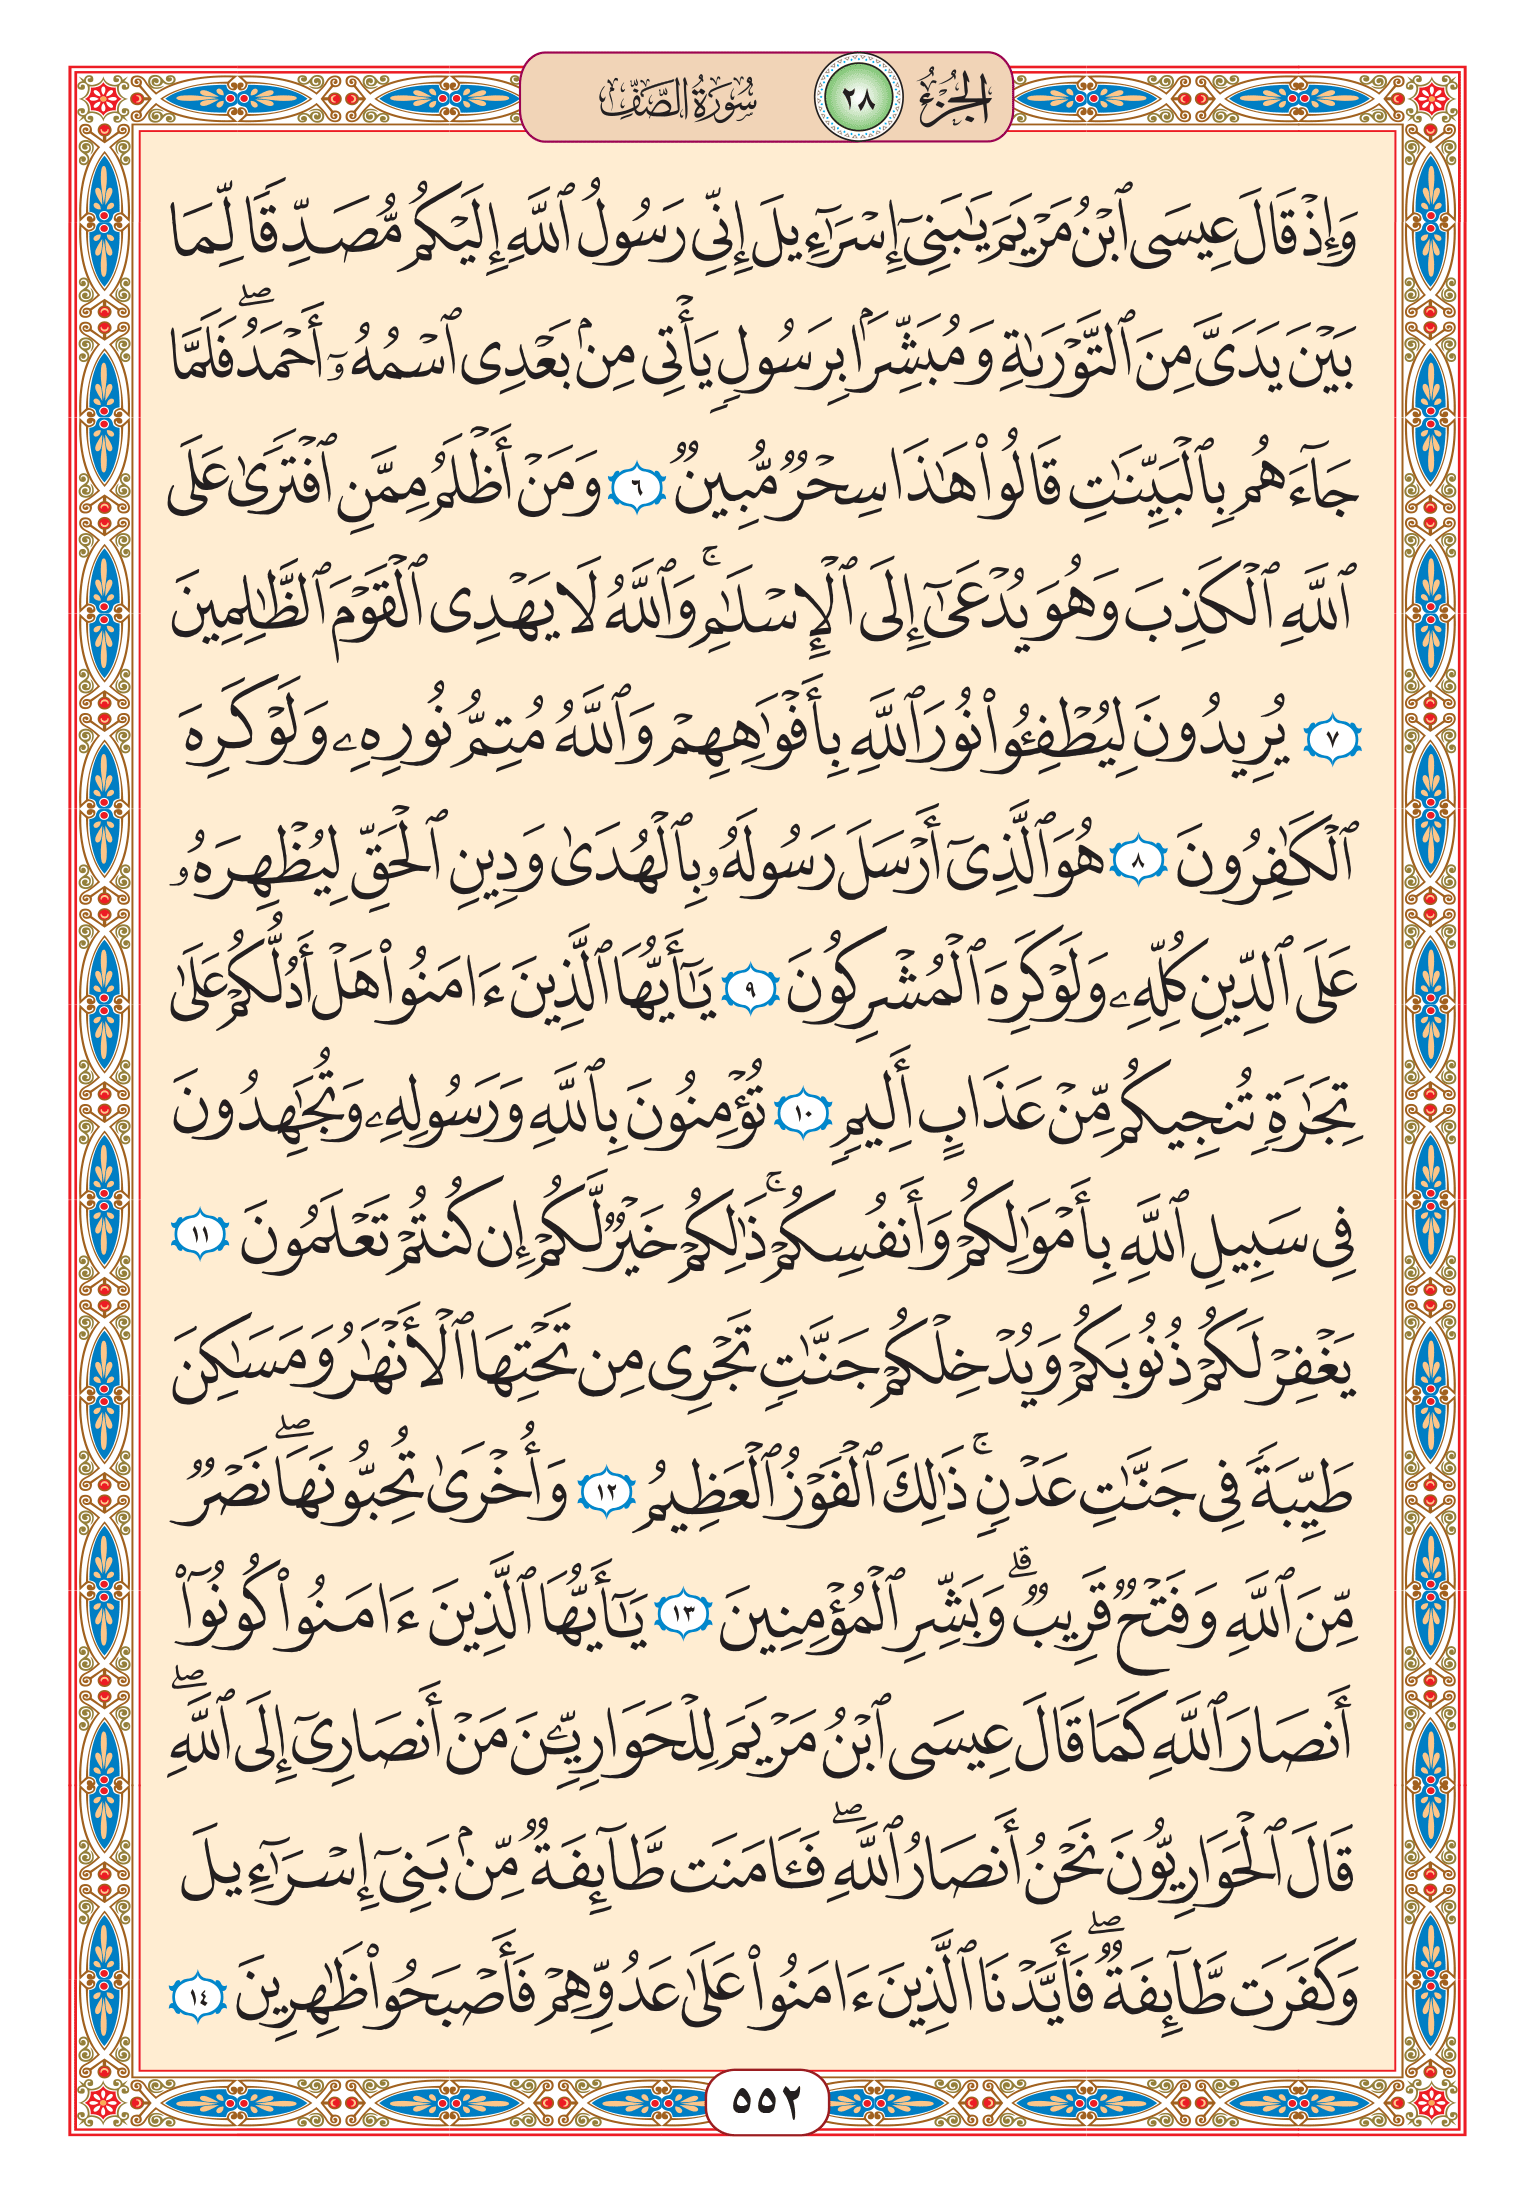 الجزء ٢٨ سورة الصف
وَإِذۡ قَالَ عِيسَى ٱبۡنُ مَرۡيَمَ يَٰبَنِيٓ إِسۡرَٰٓءِيلَ إِنِّي رَسُولُ ٱللَّهِ إِلَيۡكُم مُّصَدِّقٗا لِّمَا
بَيۡنَ يَدَيَّ مِنَ ٱلتَّوۡرَىٰةِ وَمُبَشِّرَۢا بِرَسُولٖ يَأۡتِي مِنۢ بَعۡدِي ٱسۡمُهُۥٓ أَحۡمَدُۖ فَلَمَّا
جَآءَهُم بِٱلۡبَيِّنَٰتِ قَالُواْ هَٰذَا سِحۡرٞ مُّبِينٞ ٦ وَمَنۡ أَظۡلَمُ مِمَّنِ ٱفۡتَرَىٰ عَلَى
ٱللَّهِ ٱلۡكَذِبَ وَهُوَ يُدۡعَىٰٓ إِلَى ٱلۡإِسۡلَٰمِۚ وَٱللَّهُ لَا يَهۡدِي ٱلۡقَوۡمَ ٱلظَّٰلِمِينَ
٧ يُرِيدُونَ لِيُطۡفِـُٔواْ نُورَ ٱللَّهِ بِأَفۡوَٰهِهِمۡ وَٱللَّهُ مُتِمُّ نُورِهِۦ وَلَوۡ كَرِهَ
ٱلۡكَٰفِرُونَ ٨ هُوَ ٱلَّذِيٓ أَرۡسَلَ رَسُولَهُۥ بِٱلۡهُدَىٰ وَدِينِ ٱلۡحَقِّ لِيُظۡهِرَهُۥ
عَلَى ٱلدِّينِ كُلِّهِۦ وَلَوۡ كَرِهَ ٱلۡمُشۡرِكُونَ ٩ يَٰٓأَيُّهَا ٱلَّذِينَ ءَامَنُواْ هَلۡ أَدُلُّكُمۡ عَلَىٰ
تِجَٰرَةٖ تُنجِيكُم مِّنۡ عَذَابٍ أَلِيمٖ ١٠ تُؤۡمِنُونَ بِٱللَّهِ وَرَسُولِهِۦ وَتُجَٰهِدُونَ
فِي سَبِيلِ ٱللَّهِ بِأَمۡوَٰلِكُمۡ وَأَنفُسِكُمۡۚ ذَٰلِكُمۡ خَيۡرٞ لَّكُمۡ إِن كُنتُمۡ تَعۡلَمُونَ ١١
يَغۡفِرۡ لَكُمۡ ذُنُوبَكُمۡ وَيُدۡخِلۡكُمۡ جَنَّٰتٖ تَجۡرِي مِن تَحۡتِهَا ٱلۡأَنۡهَٰرُ وَمَسَٰكِنَ
طَيِّبَةٗ فِي جَنَّٰتِ عَدۡنٖۚ ذَٰلِكَ ٱلۡفَوۡزُ ٱلۡعَظِيمُ ١٢ وَأُخۡرَىٰ تُحِبُّونَهَاۖ نَصۡرٞ
مِّنَ ٱللَّهِ وَفَتۡحٞ قَرِيبٞۗ وَبَشِّرِ ٱلۡمُؤۡمِنِينَ ١٣ يَٰٓأَيُّهَا ٱلَّذِينَ ءَامَنُواْ كُونُوٓاْ
أَنصَارَ ٱللَّهِ كَمَا قَالَ عِيسَى ٱبۡنُ مَرۡيَمَ لِلۡحَوَارِيِّـۧنَ مَنۡ أَنصَارِيٓ إِلَى ٱللَّهِۖ
قَالَ ٱلۡحَوَارِيُّونَ نَحۡنُ أَنصَارُ ٱللَّهِۖ فَـَٔامَنَت طَّآئِفَةٞ مِّنۢ بَنِيٓ إِسۡرَٰٓءِيلَ
وَكَفَرَت طَّآئِفَةٞۖ فَأَيَّدۡنَا ٱلَّذِينَ ءَامَنُواْ عَلَىٰ عَدُوِّهِمۡ فَأَصۡبَحُواْ ظَٰهِرِينَ ١٤
٥٥٢